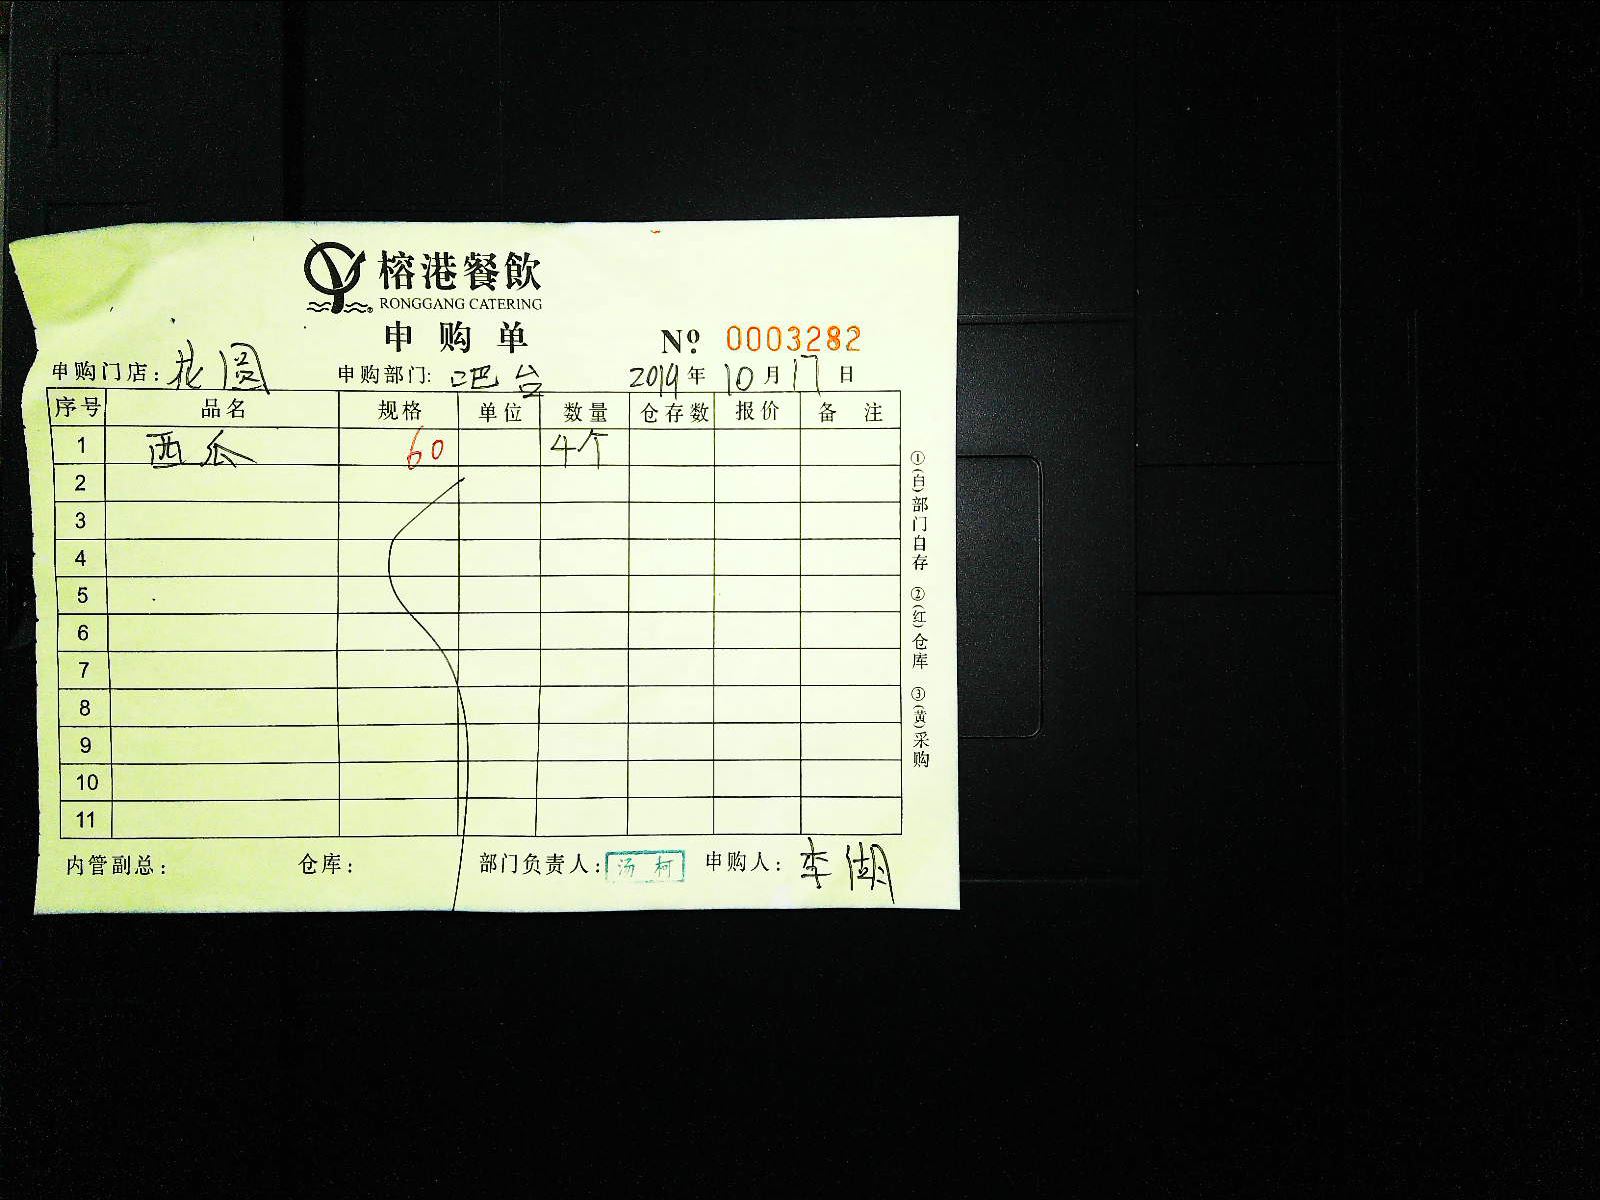 榕港餐飲
RONGGANG CATERING
申购单 Nº 0003282
申购门店：花园 申购部门：吧台 2019年10月17日
序号 品名 规格 单位 数量 仓存数 报价 备注
1 西瓜 60 4个
2
3
4
5
6
7
8
9
10
11
内管副总： 仓库： 部门负责人：汤柯 申购人：李湖
①(白)部门自存 ②(红)仓库 ③(黄)采购